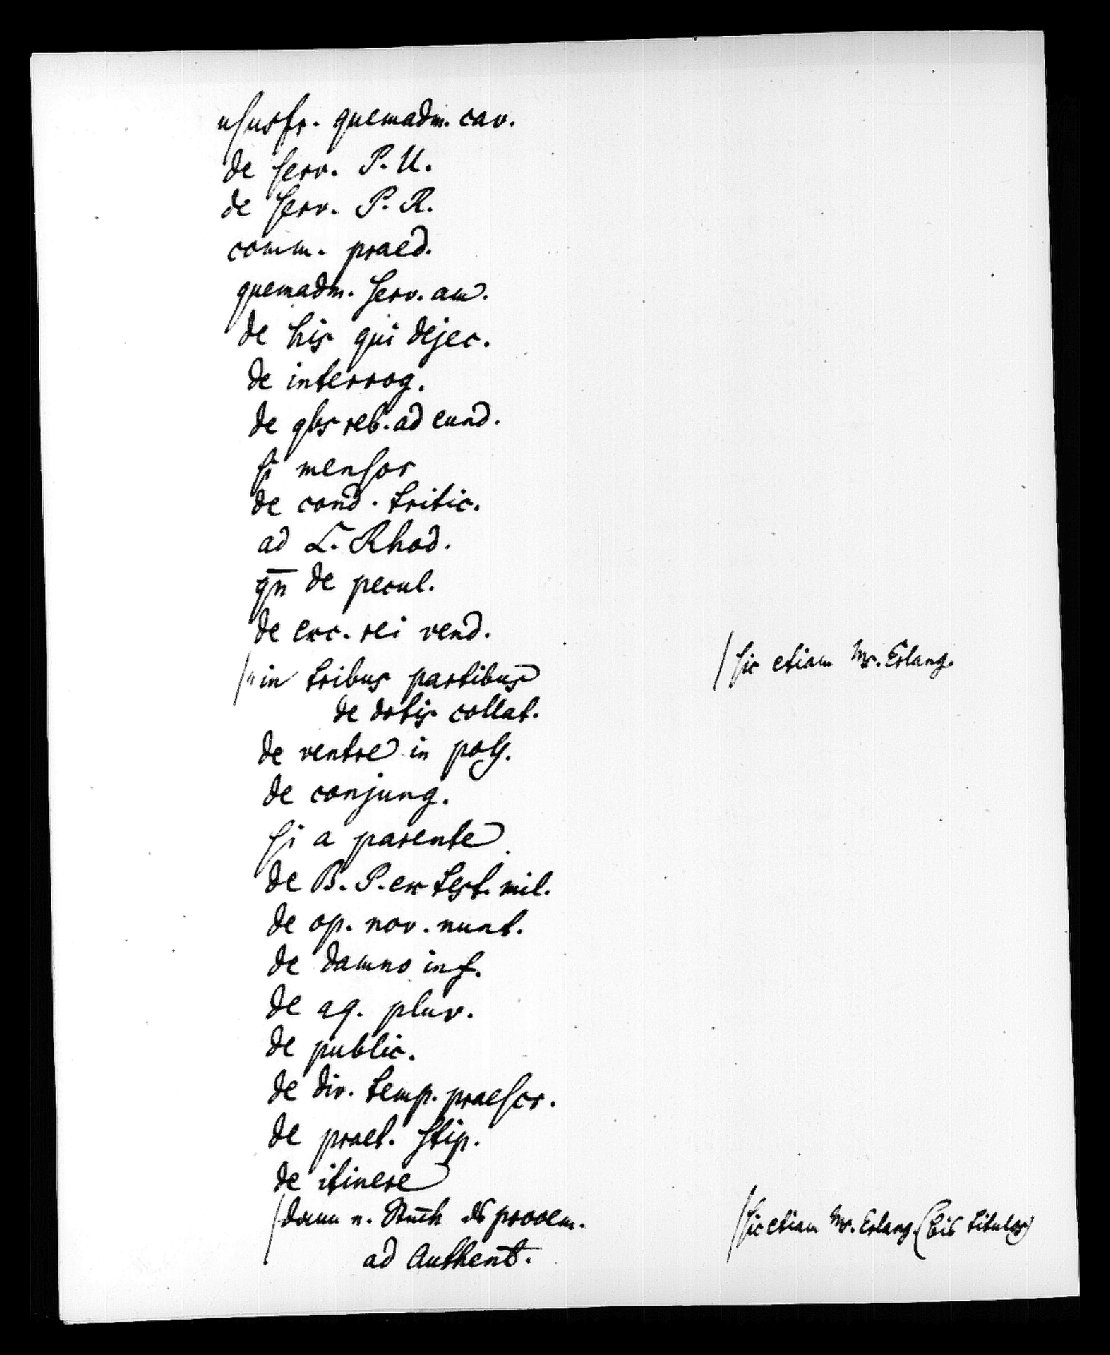 usufr. quemadm. cav.
de serv. P. U.
de serv. P. R.
comm. praed.
quemadm. serv. am.
de his qui dejec.
de interrog.
de qbs reb. ad eund.
si mensor
de cond. tritic.
ad L. Rhod.
qn de pecul.
de exc. rei vend.
in tribus partibus
sic etiam Ms. Erlang.
de dotis collat.
de ventre in poss.
de conjung.
si a parente
de B. P. ex test. mil.
de op. nov. nunt.
de damno inf.
de aq. pluv.
de public.
de div. temp. praescr.
de praet. stip.
de itinere
dann n. prooem.
sic etiam Ms. Erlang. (bis titulos)
ad Authent.